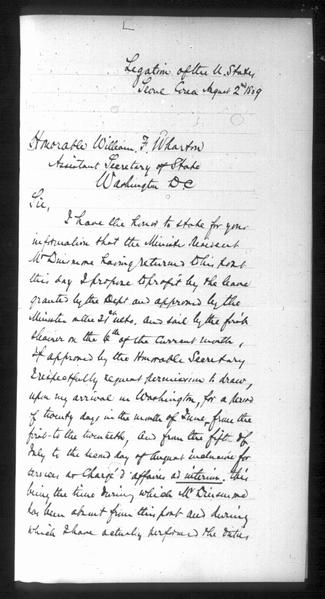 Legation of the U. States
Seoul Corea August 2nd 1889
Honorable William F. Wharton
Assistant Secretary of State
Washington DC
Sir,
I have the honor to state for your
information that the Minister Resident
Mr Dinsmore having returned to his post
this day I propose to profit by the leave
granted by the Dept and approved by the
Minister on the 21st ulto. and sail by the first
steamer on the 6th of the current month,
If approved by the Honorable Secretary
I respectfully request permission to draw,
upon my arrival in Washington, for a period
of twenty days in the month of June, from the
first to the twentieth, and from the fifth of
July to the second day of August inclusive for
services as Chargé d'affaires ad interim. this
being the time during which Mr Dinsmore
has been absent from this post and during
which I have actually performed the duties